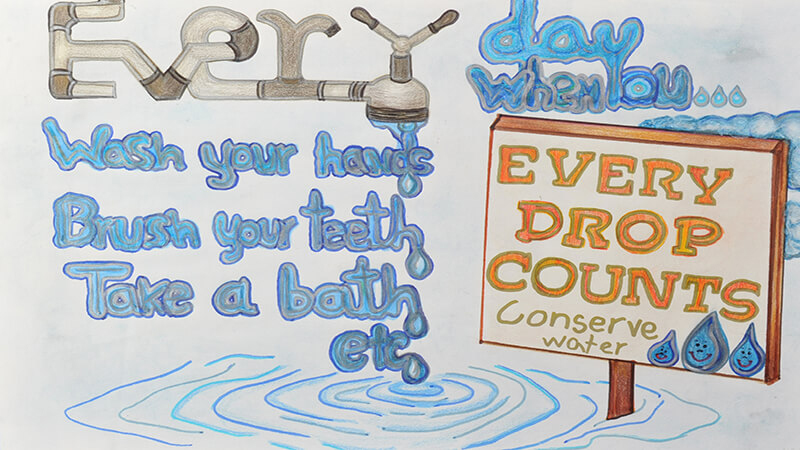 Every day
when you...
Wash your hands
Brush your teeth
Take a bath
etc
EVERY
DROP
COUNTS
Conserve
water